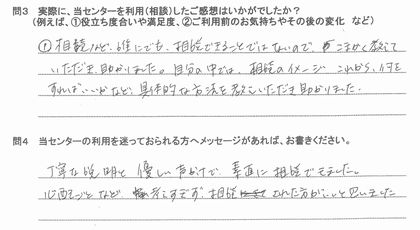 問3 実際に、当センターを利用(相談)したご感想はいかがでしたか?
(例えば、①役立ち度合いや満足度、②ご利用前のお気持ちやその後の変化 など)
① 相続など、誰にでも、相談できることではないので、細かく教えて
いただき助かりました。自分の中では、相続のイメージ これから、何を
すればいいかなど、具体的な方法を教えいただき助かりました。
問4 当センターの利用を迷っておられる方へメッセージがあれば、お書きください。
丁寧な説明と優しい声かけで、素直に相談できました。
心配ごとなど、考えすぎず、相談された方がいいと思いました